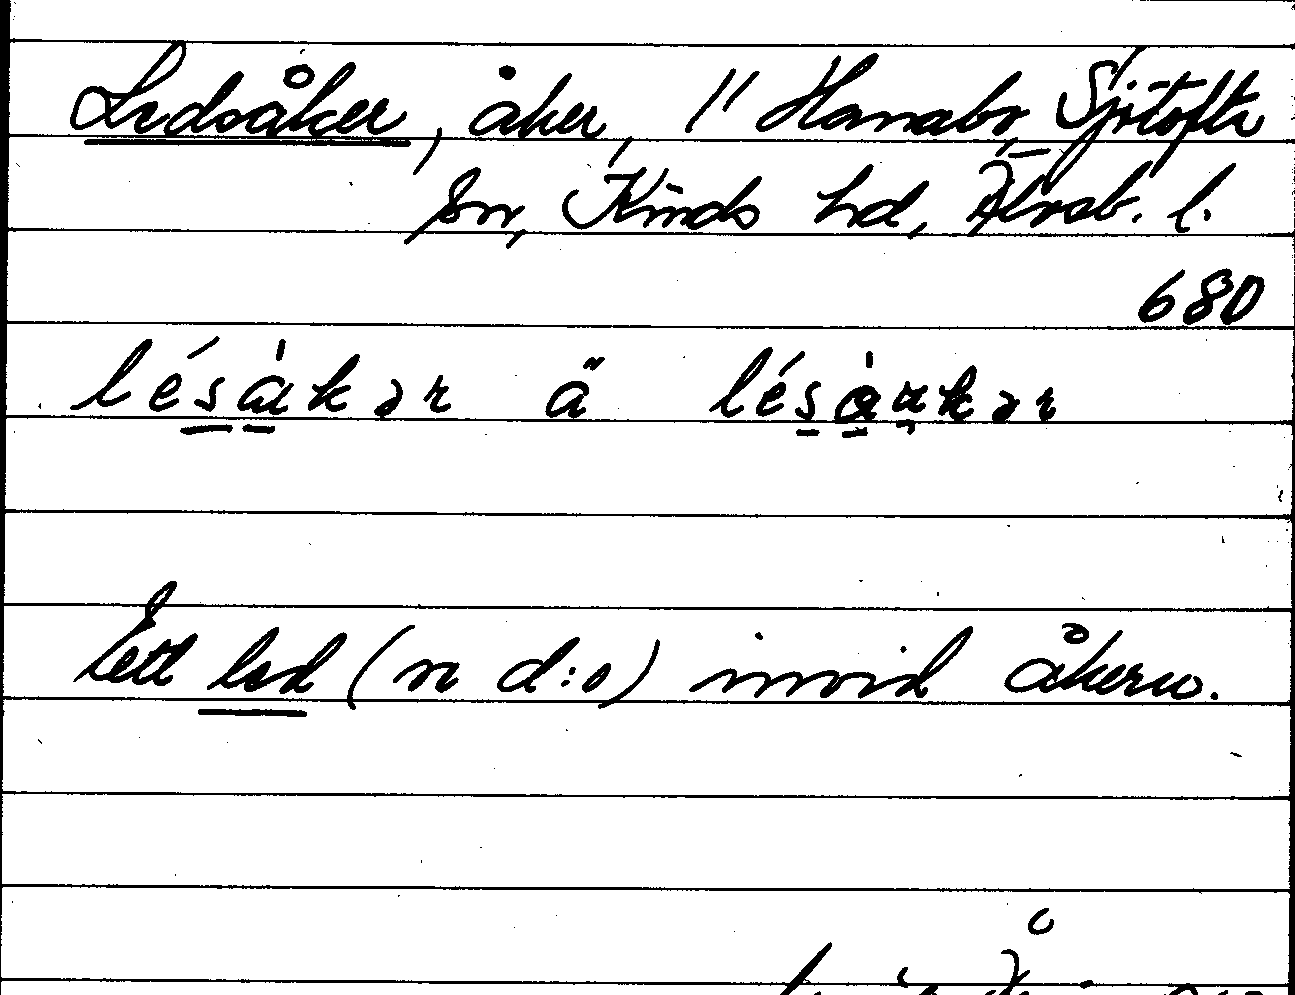 Ledsåker, åker, 1/1 Hanabo, Sjötofta
sn, Kinds hd, Älvsb. l.
680
lésàkər ä lésàukər
Ett led (n d:o) invid åkern.